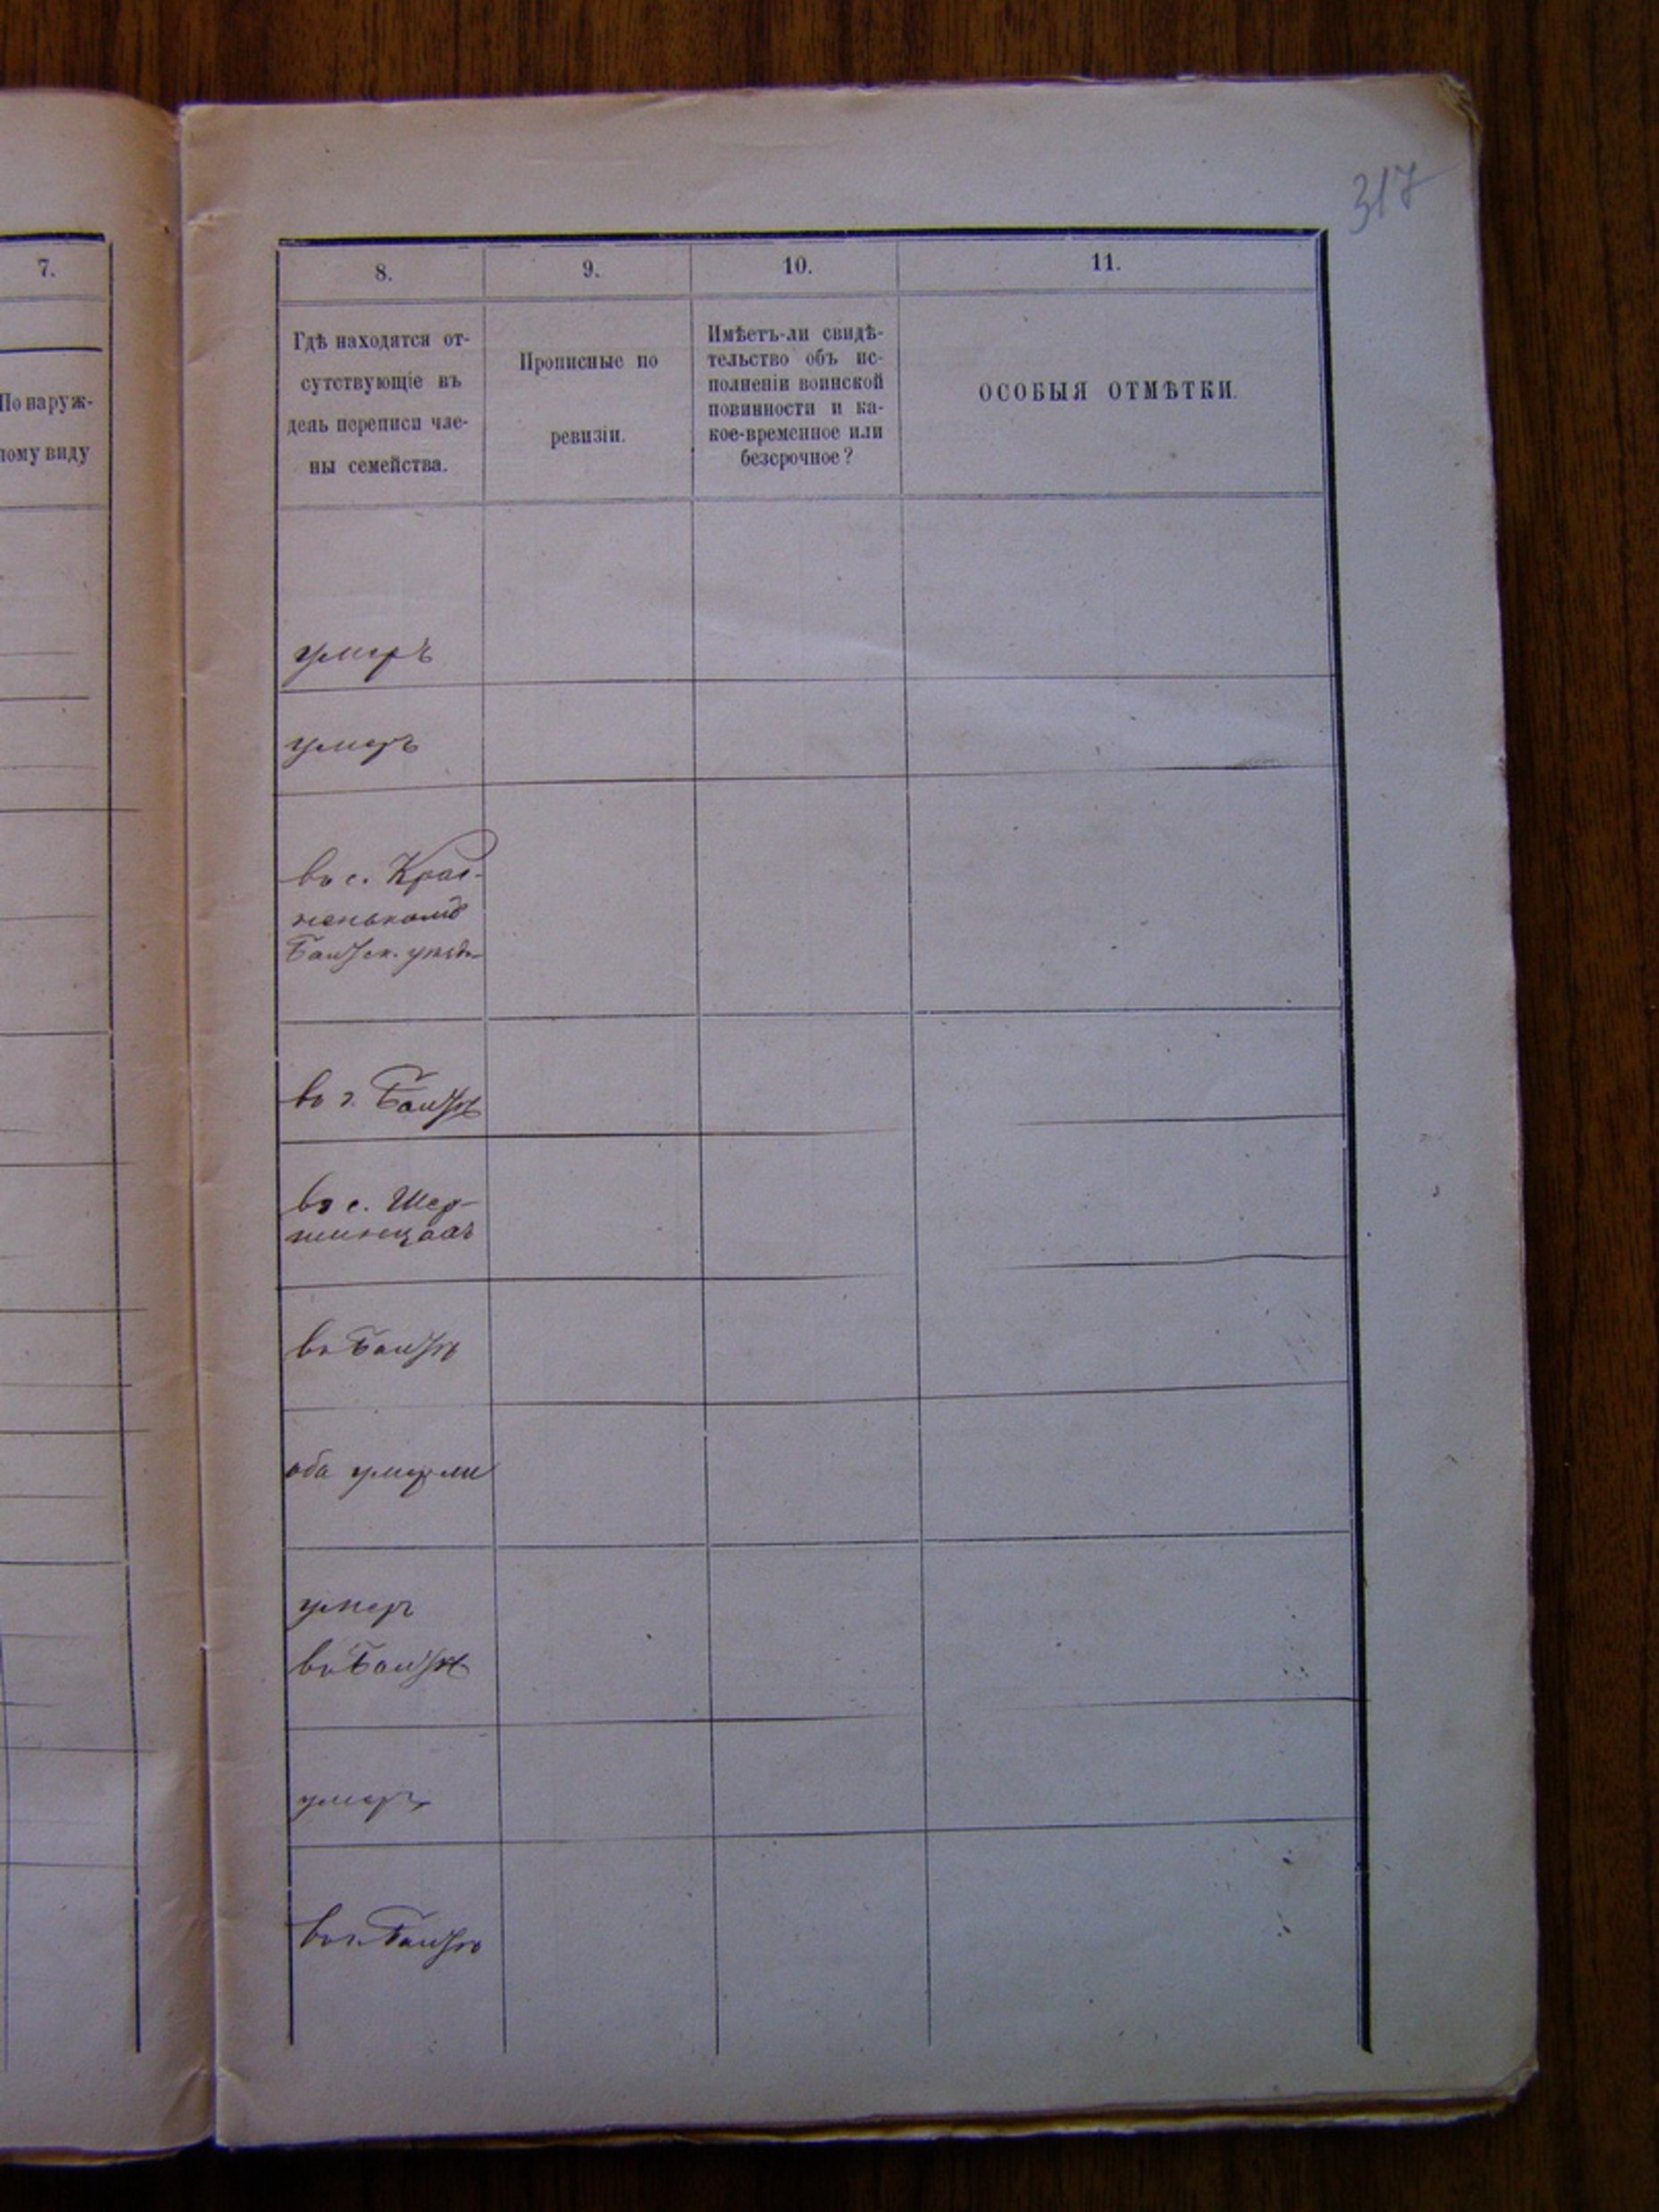 317
7.
По наруж-
ному виду
8.
9.
10.
11.
Гдѣ находятся от-
сутствующіе въ
день переписи чле-
ны семейства.
Прописные по
ревизіи.
Имѣетъ-ли свидѣ-
тельство объ ис-
полненіи воинской
повинности и ка-
кое-временное или
безсрочное?
ОСОБЫЯ ОТМѢТКИ.
умеръ
умеръ
въ с. Крас-
неньком
Балтск. уѣзд.
въ г. Балтѣ
въ с. Шер-
въ Балтѣ
оба умерли
умеръ
въ Балтѣ
умеръ
въ г. Балтѣ